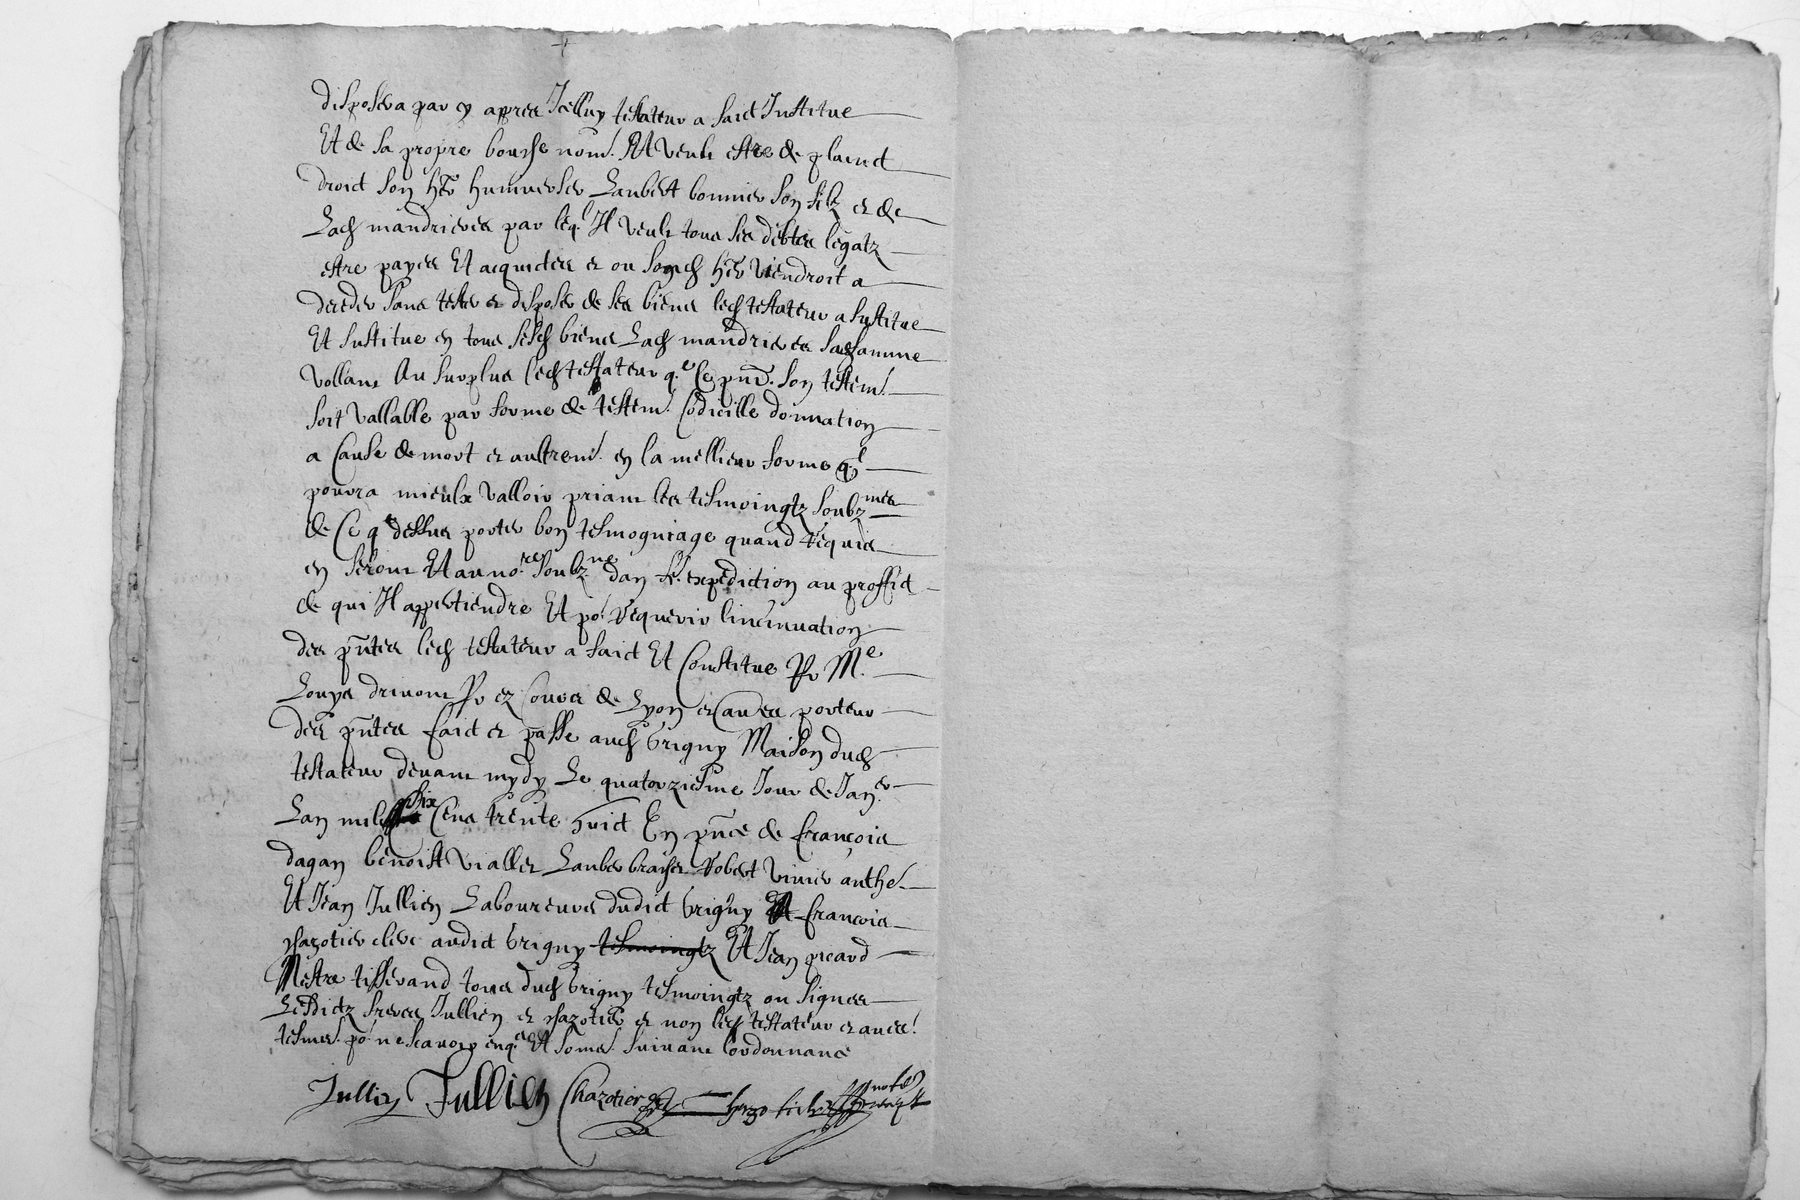 disposera par cy appres Icelluy testateur a faict Institue
Et de sa propre bousche nom. Et veult estre de plainct
droict son her huniverser Laubert bonnier son filz et de
Lad mandrieres par leql Il veult tous ses debtes legatz
estre payes Et acquictes et ou sond her viendroit a
deceder sans tester et disposer de ses biens led testateur a sustitue
Et sustitue en tous sesd biens Lad mandrieres sad famme
Vollant Au surplus led testateur q.e Ce pnt. son testemt
soit vallable par forme de testemt Codicille donnation
a Cause de mort et aultremt. en la mellieur forme ql
pourra mieulx valloir priant les tesmoingtz soubznes
de Ce q dessus porter bon tesmogniage quand requis
en seront Et au no.re soubz.ne dan fe. expedition au proffict
de qui Il appertiendre Et po.r requerir lincinuation
des pntes led testateur a faict Et Constitue Pr M.e
Louys drivont Pr ez Cours de Lyon et aues porteur
des pntes faict et passe aud Grigny Maison dud
testateur devant mydy Le quatorziesme Jour de Jan.er
Lan mil six Cens trente huict En pnce de francois
dagan benoist viallet Lauber braiset robert vivier anthe.
Et Jean Jullien Laboureurs dudict Grigny Et francois
chazotier clerc audict Grigny tesmoingtz Et Jean picard
Mestre tisserand tous dud Grigny tesmoingtz ou signes
Lesdictz freres Jullien et chazotier et non led testateur et aues
tesmes. po.r ne scavoyr enq.s Et somes. suivant lordonnance
Jullien Jullien Chazotier